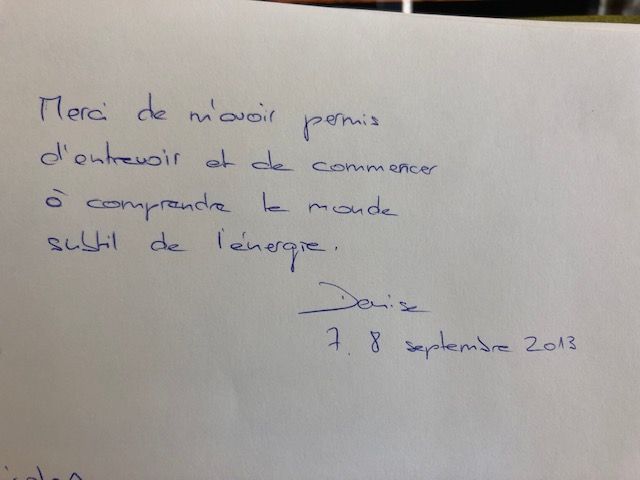 Merci de m'avoir permis
d'entrevoir et de commencer
à comprendre le monde
subtil de l'énergie.
Denise
7. 8 septembre 2013